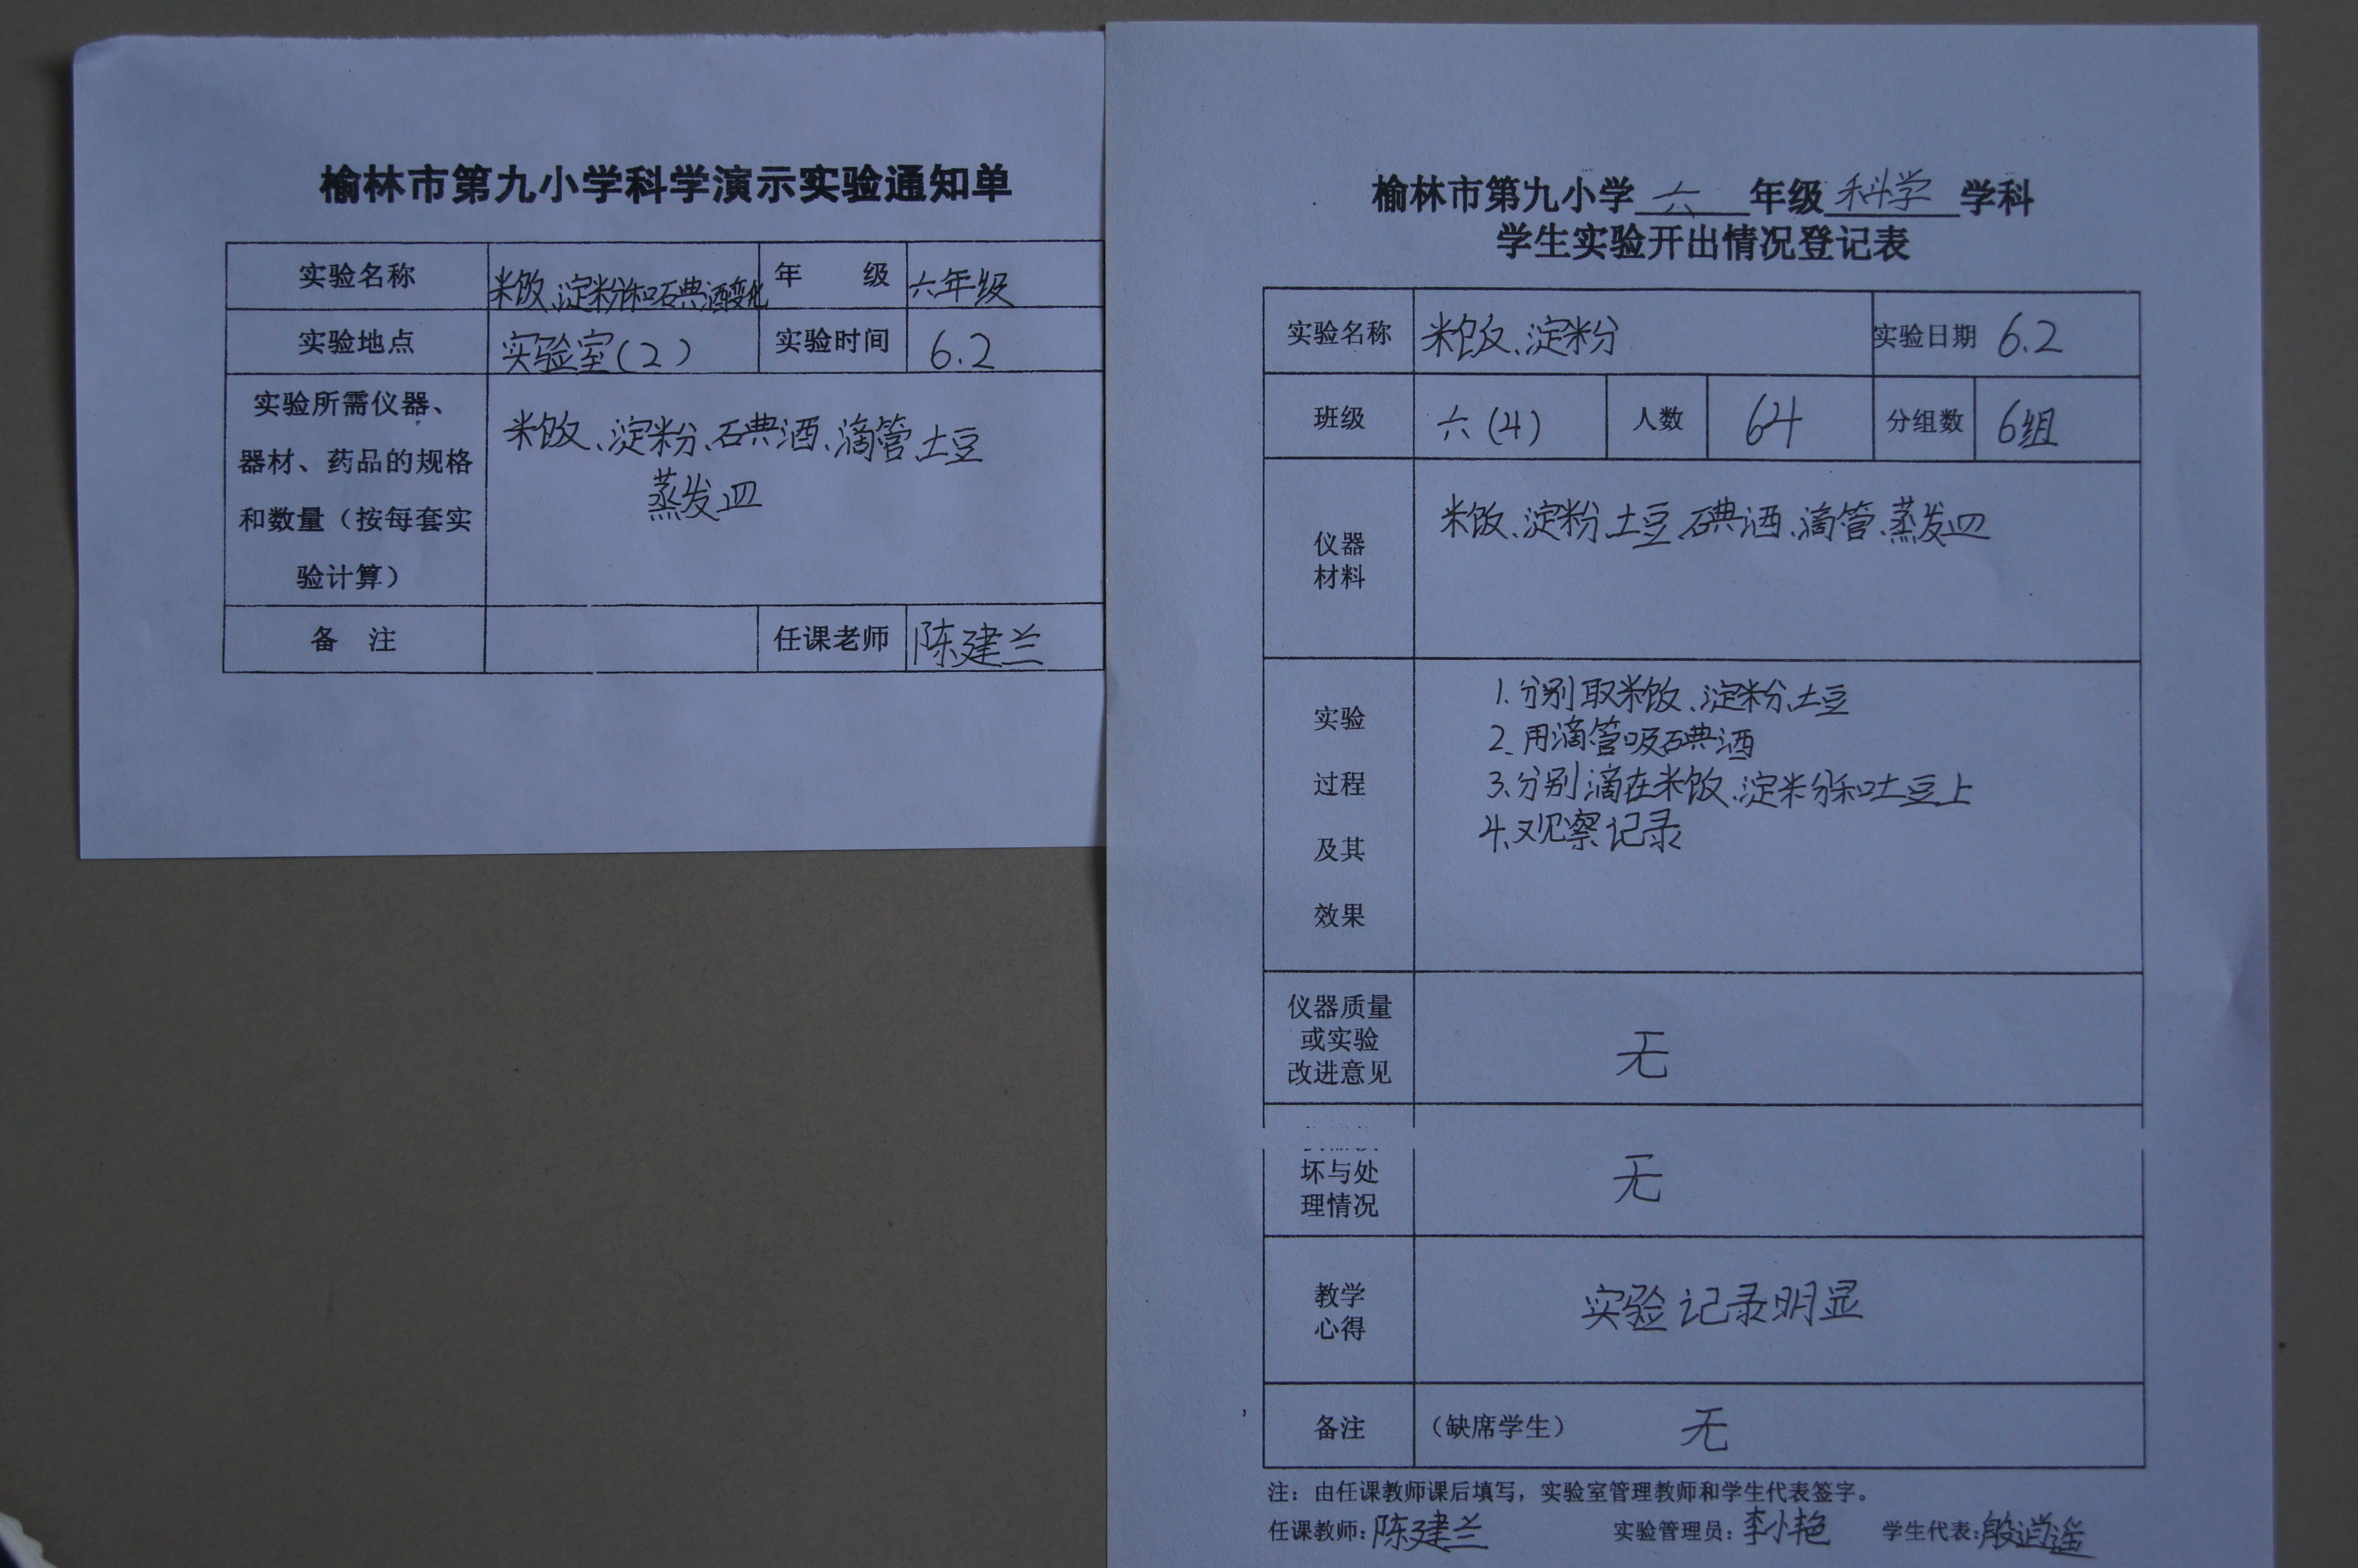 榆林市第九小学科学演示实验通知单
实验名称 米饭、淀粉和碘酒变化 年 级 六年级
实验地点 实验室(2) 实验时间 6.2
实验所需仪器、
器材、药品的规格
和数量(按每套实
验计算)
米饭、淀粉、碘酒、滴管、土豆
蒸发皿
备 注 任课老师 陈建兰
榆林市第九小学 六 年级 科学 学科
学生实验开出情况登记表
实验名称 米饭、淀粉 实验日期 6.2
班级 六(4) 人数 64 分组数 6组
仪器
材料
米饭、淀粉、土豆、碘酒、滴管、蒸发皿
实验
过程
及其
效果
1.分别取米饭、淀粉、土豆
2.用滴管吸碘酒
3.分别滴在米饭、淀粉和吐豆上
4.观察记录
仪器质量
或实验
改进意见
无
坏与处
理情况
无
教学
心得
实验记录明显
备注 (缺席学生) 无
注：由任课教师课后填写，实验室管理教师和学生代表签字。
任课教师：陈建兰 实验管理员：李小艳 学生代表：殷逍遥